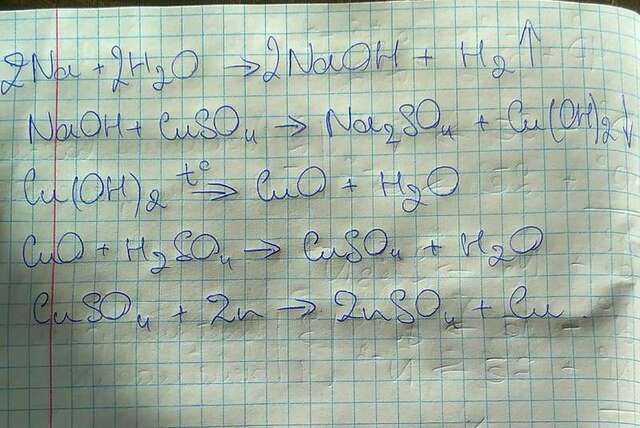 2Na + 2H₂O → 2NaOH + H₂↑
NaOH + CuSO₄ → Na₂SO₄ + Cu(OH)₂↓
Cu(OH)₂ t°⇒ CuO + H₂O
CuO + H₂SO₄ → CuSO₄ + H₂O
CuSO₄ + Zn → ZnSO₄ + Cu